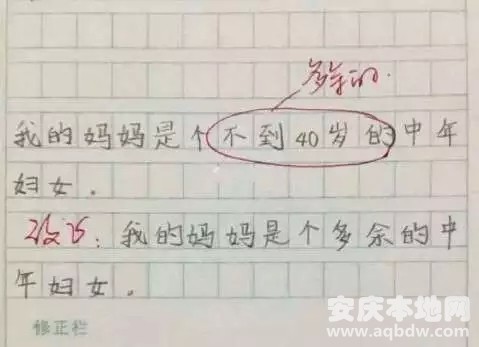 多余的.
我的妈妈是个不到40岁的中年
妇女.
改正:我的妈妈是个多余的中
年妇女.
修正栏
安庆本地网
www.aqbdw.com